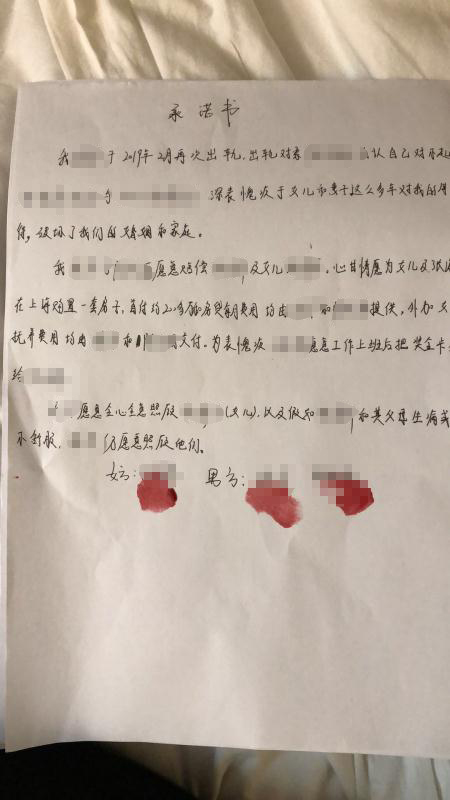 承诺书
我于2019年2月再次出轨,出轨对象 认自己对不起
与 深表愧疚于女儿和妻子这么多年对我的
任,破坏了我们的婚姻和家庭。
我 愿意赔偿 及女儿 ,心甘情愿为女儿及
在上海购置一套房子,首付约220多万和房贷每月费用均由 和 提供,外加
抚养费用均由 和 交付。为表愧疚 愿意工作上班后把奖金卡
给
愿意全心全意照顾 (女儿),以及假如 和其父母生病或
不舒服, 仍愿意照顾他们。
女方: 男方: